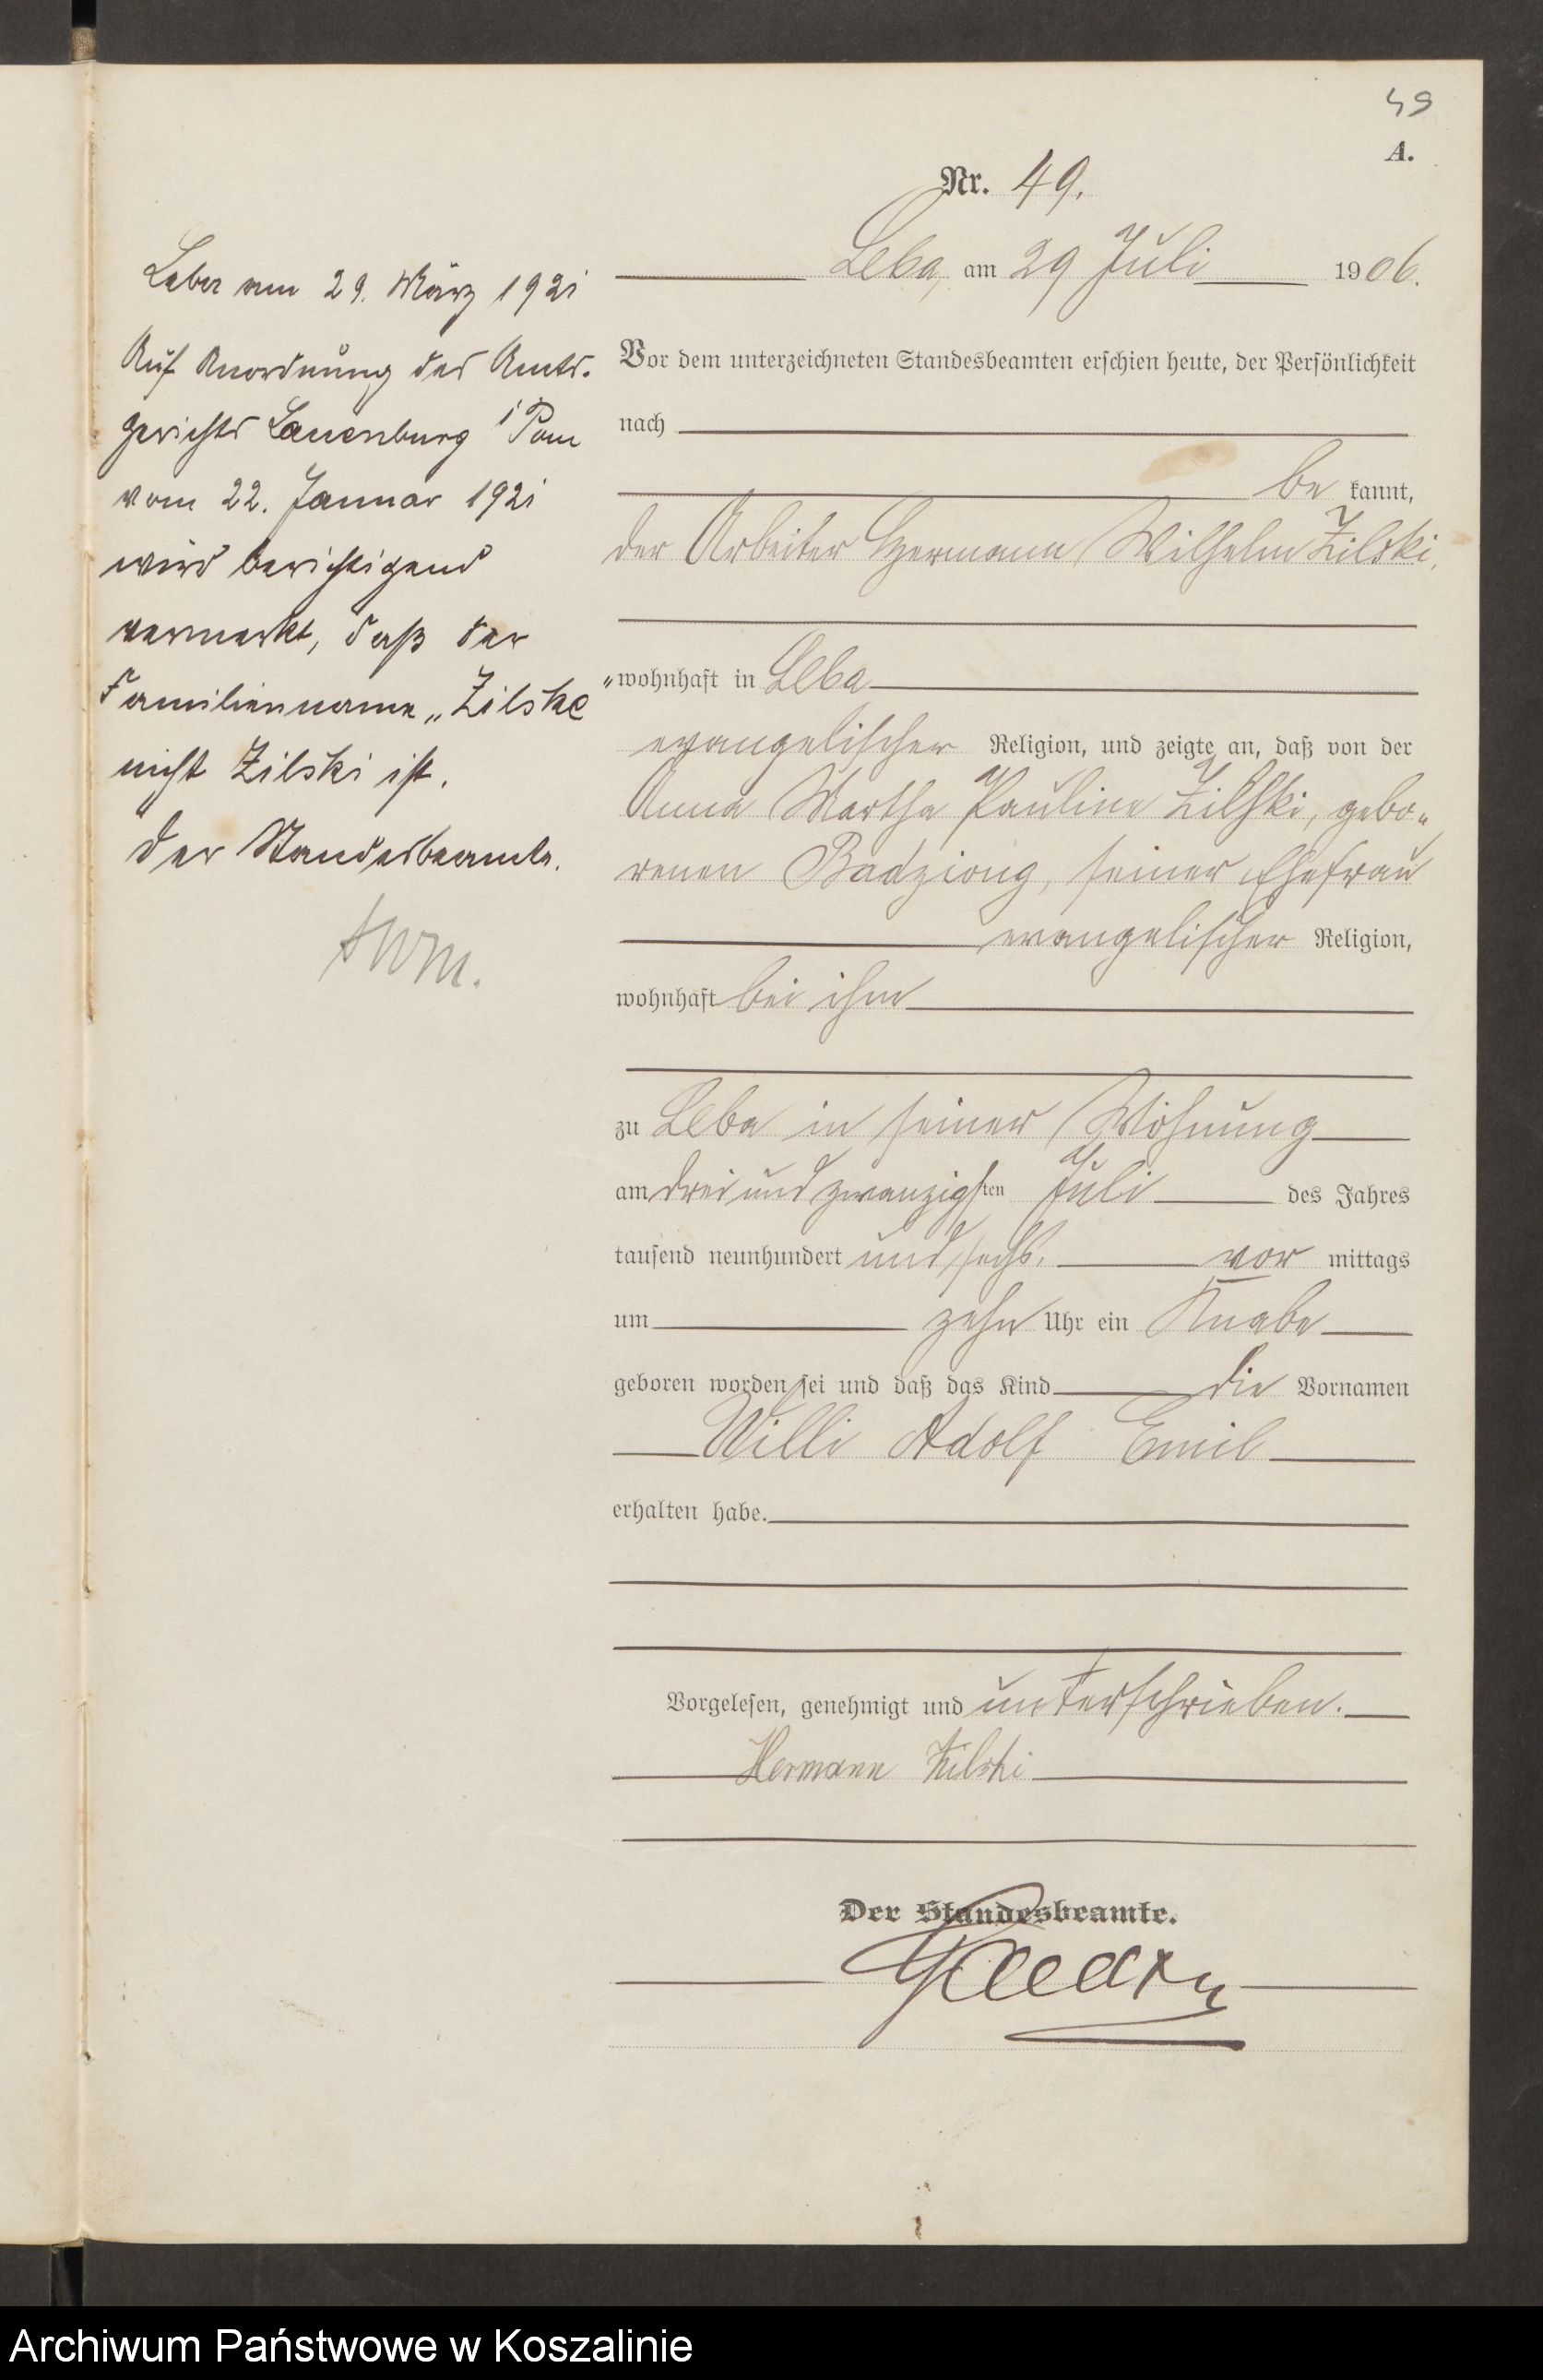 49
A.
Nr. 49.
Leba, am 29 Juli 1906.
Vor dem unterzeichneten Standesbeamten erschien heute, der Persönlichkeit
nach
be kannt,
der Arbeiter Hermann Wilhelm Zilski,
wohnhaft in Leba
evangelischer Religion, und zeigte an, daß von der
Anna Martha Pauline Zilski, gebo-
renen Badziong, seiner Ehefrau
evangelischer Religion,
wohnhaft bei ihm
zu Leba in seiner Wohnung
am drei und zwanzigsten Juli des Jahres
tausend neunhundert und sechs. vor mittags
um zehn Uhr ein Knabe
geboren worden sei und daß das Kind die Vornamen
Willi Adolf Emil
erhalten habe.
Vorgelesen, genehmigt und unterschrieben.
Hermann Zilski
Der Standesbeamte.
Leba am 29. März 1921
Auf Anordnung des Amts-
gerichts Lauenburg i Pom
vom 22. Januar 1921
wird berichtigend
vermerkt, daß der
Familienname „Zilske
nicht Zilski ist.
Der Standesbeamte.
Archiwum Państwowe w Koszalinie